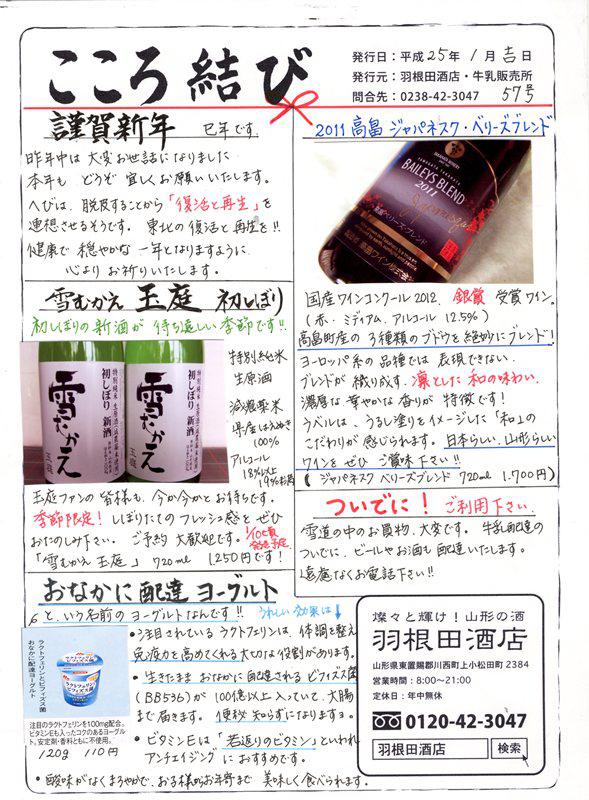 こころ結び
発行日：平成25年1月吉日
発行元：羽根田酒店・牛乳販売所
問合先：0238-42-3047 57号
謹賀新年 巳年です
昨年中は大変お世話になりました
本年もどうぞ宜しくお願いいたします。
へびは、脱皮することから「復活と再生」を
連想させるそうです。東北の復活と再生を!!
健康で穏やかな一年となりますように
心よりお祈りいたします。
雪むかえ 玉庭 初しぼり
初しぼりの新酒が待ち遠しい季節です!!
特別純米 生原酒 減農薬米使用
初しぼり 新酒
雪むかえ
玉庭
初しぼり 新酒
雪むかえ
玉庭
特別純米
生原酒
減農薬米
県産はえぬき
100%
アルコール
18%以上
19%未満
玉庭ファンの皆様も、今か今かとお待ちです。
季節限定！しぼりたてのフレッシュ感をぜひ
おたのしみ下さい。ご予約大歓迎です。
1/10頃
発売予定
「雪むかえ 玉庭」720ml 1,250円です！
おなかに配達 ヨーグルト
と、いう名前のヨーグルトなんです!! うれしい効果は↓
ラクトフェリンとビフィズス菌
おなかに配達ヨーグルト
注目のラクトフェリンを100mg配合。
ビタミンEも入ったコクのあるヨーグルト。
安定剤・香料ともに不使用。
120g 110円
・注目されているラクトフェリンは、体調を整え
免疫力を高めてくれる大切な役割があります。
・生きたまま おなかに配達される ビフィズス菌
(BB536)が100億以上入っていて、大腸
まで届きます。便秘知らずになりますョ。
・ビタミンEは「若返りのビタミン」といわれ
アンチエイジングにおすすめです。
・酸味がなくまろやかで、お子様からお年寄まで 美味しく食べられます。
2011 高畠 ジャパネスク・ベリーズブレンド
BAILEYS BLEND
2011
国産ワインコンクール2012、銀賞 受賞ワイン。
(赤、ミディアム、アルコール 12.5%)
高畠町産の3種類のブドウを絶妙にブレンド！
ヨーロッパ系の品種では表現できない
ブレンドが織り成す、凛とした和の味わい、
濃厚な華やかな香りが特徴です！
ラベルは、うるし塗りをイメージした「和」の
こだわりが感じられます。日本らしい、山形らしい
ワインをぜひ ご賞味下さい!!
(ジャパネスク ベリーズブレンド 720ml 1,700円)
ついでに！ ご利用下さい
雪道の中のお買物、大変です。牛乳配達の
ついでに、ビールやお酒も配達いたします。
遠慮なくお電話下さい!!
燦々と輝け！山形の酒
羽根田酒店
山形県東置賜郡川西町上小松田町2384
営業時間：8:00〜21:00
定休日：年中無休
0120-42-3047
羽根田酒店 検索